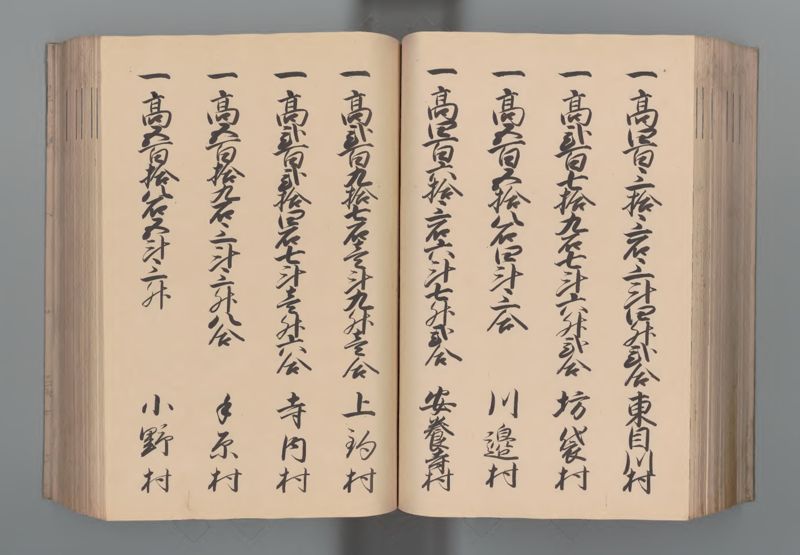 一高四百三拾三石三斗四升弐合 東目川村
一高弐百七拾九石七斗六升弐合 坊袋村
一高五百五拾八石四斗三合 川邉村
一高四百六拾三石六斗七升弐合 安養寺村
一高弐百九拾七石壱斗九升壱合 上鈎村
一高弐百弐拾四石七斗壱升六合 寺内村
一高五百拾九石三斗三升八合 手原村
一高五百拾八石五斗三升 小野村